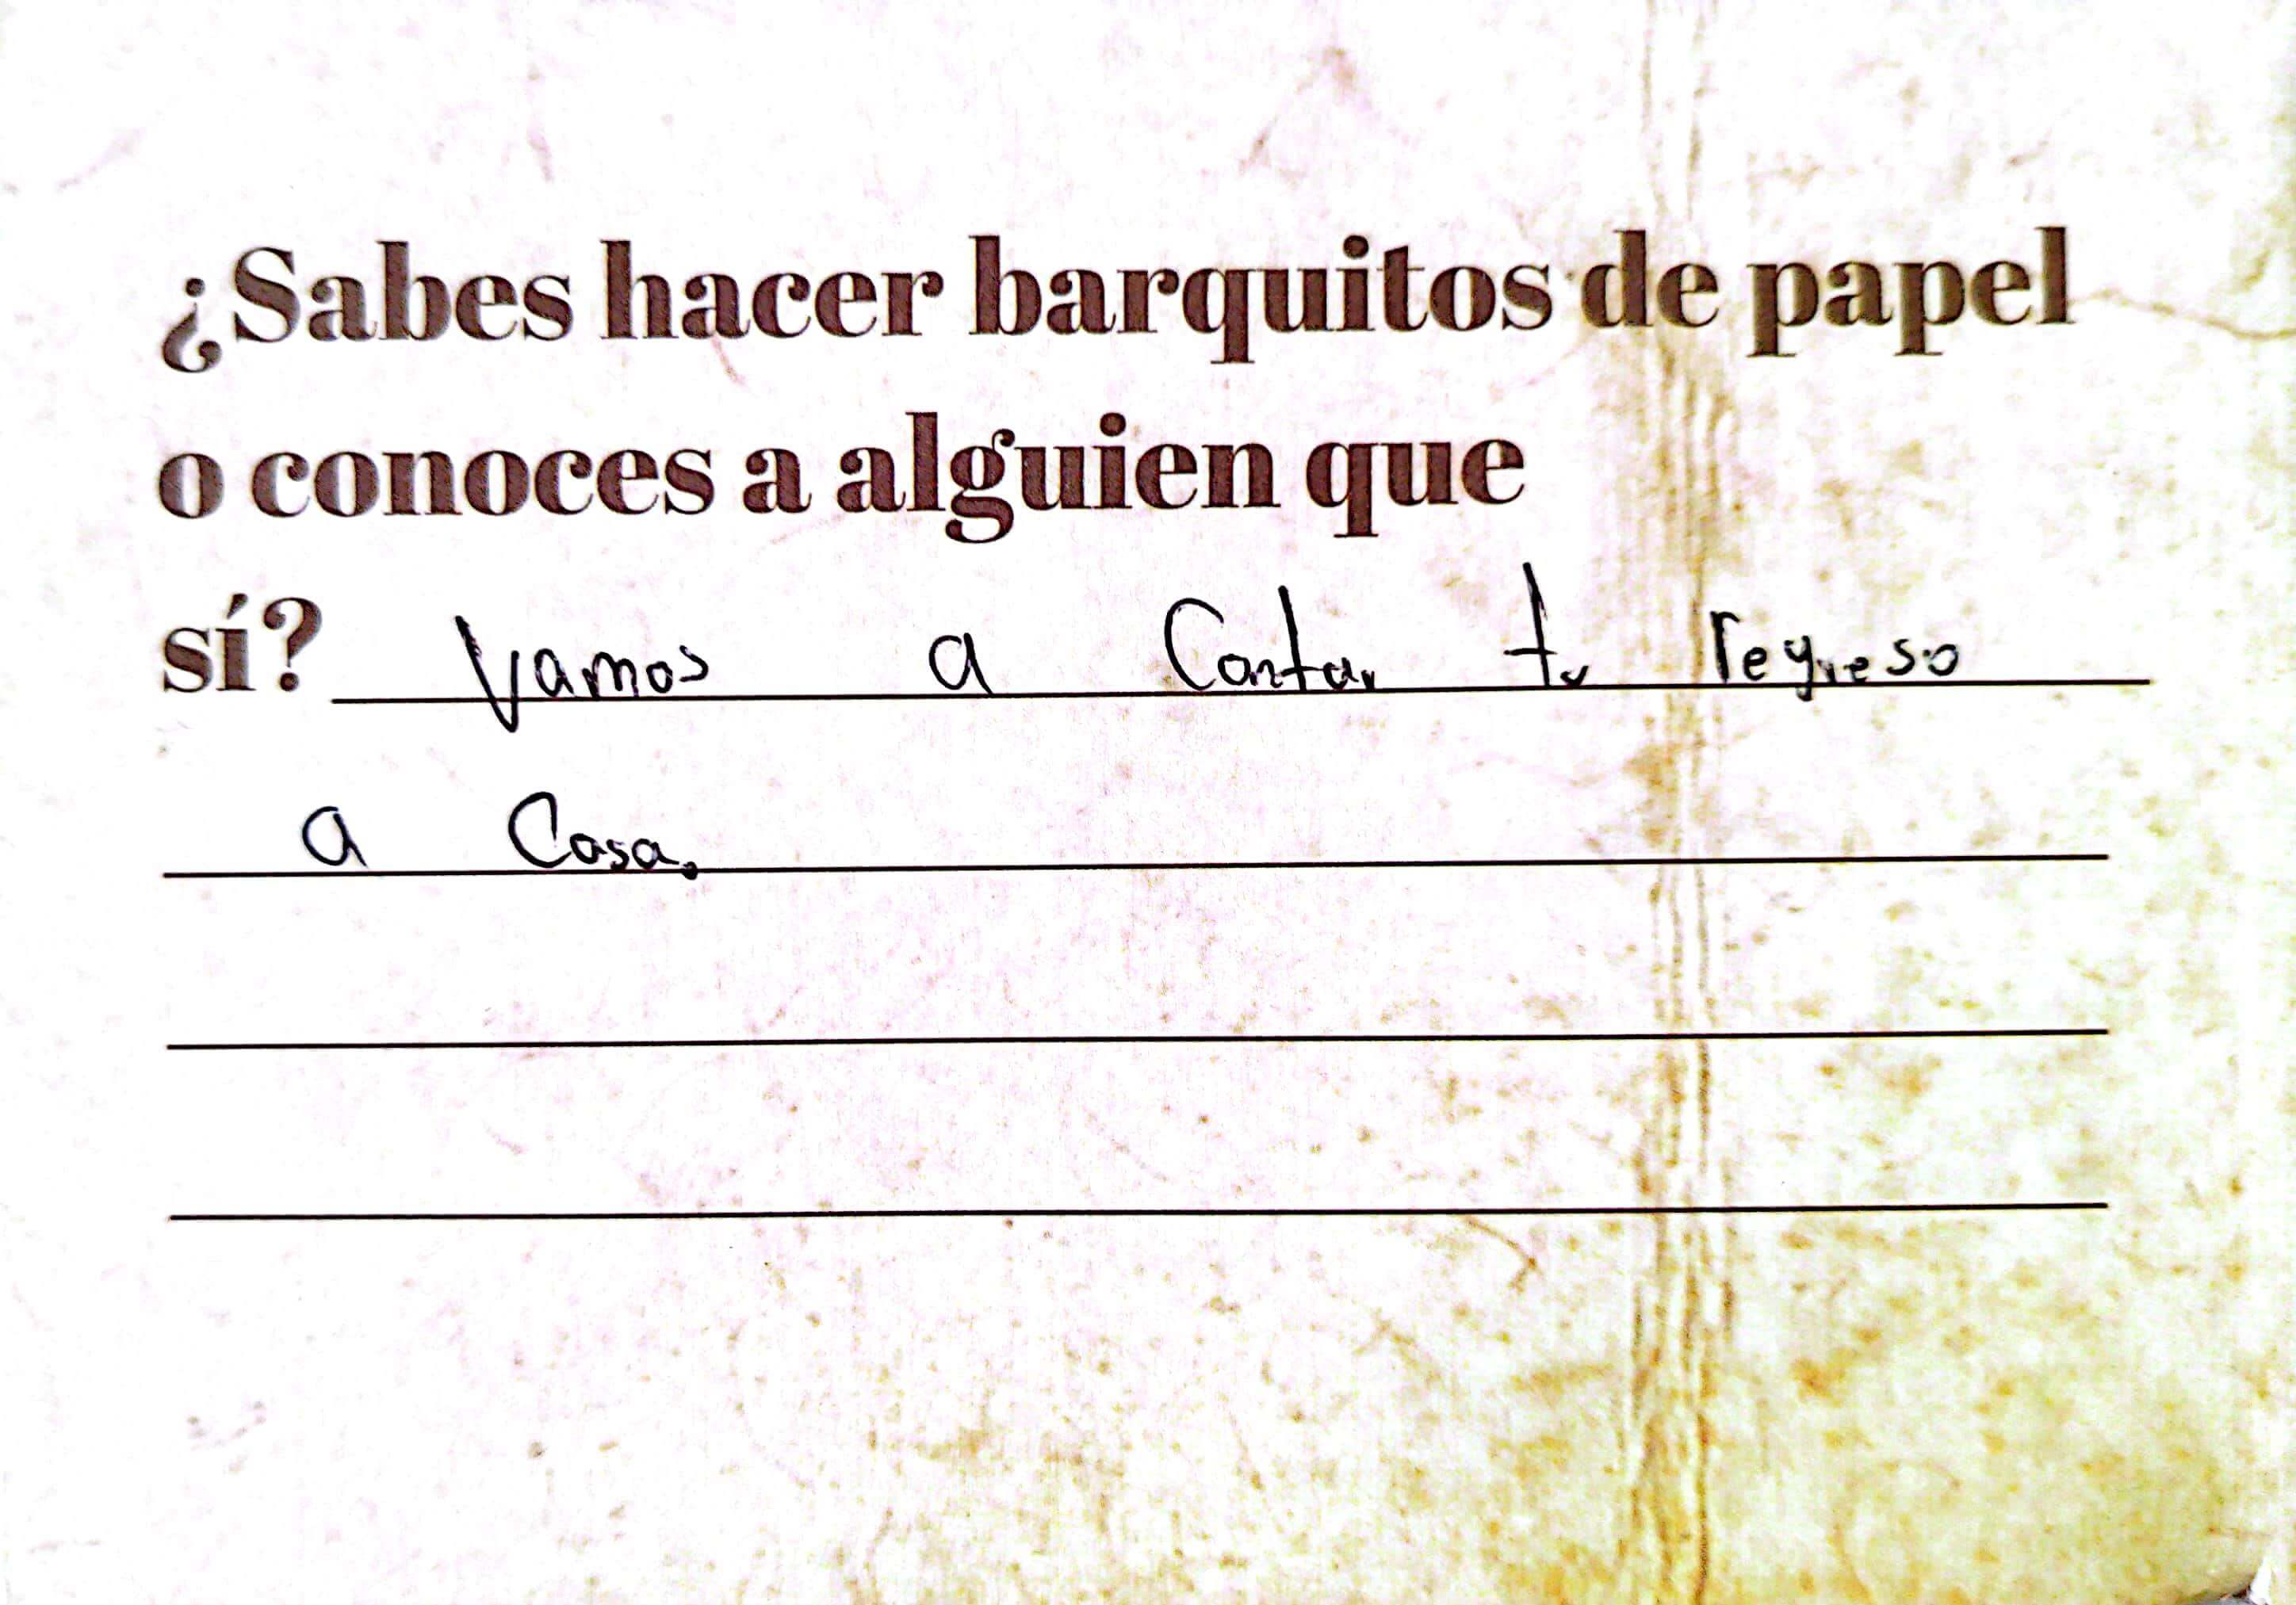 ¿Sabes hacer barquitos de papel
o conoces a alguien que
sí? Vamos a Contar tu regreso
a Casa.